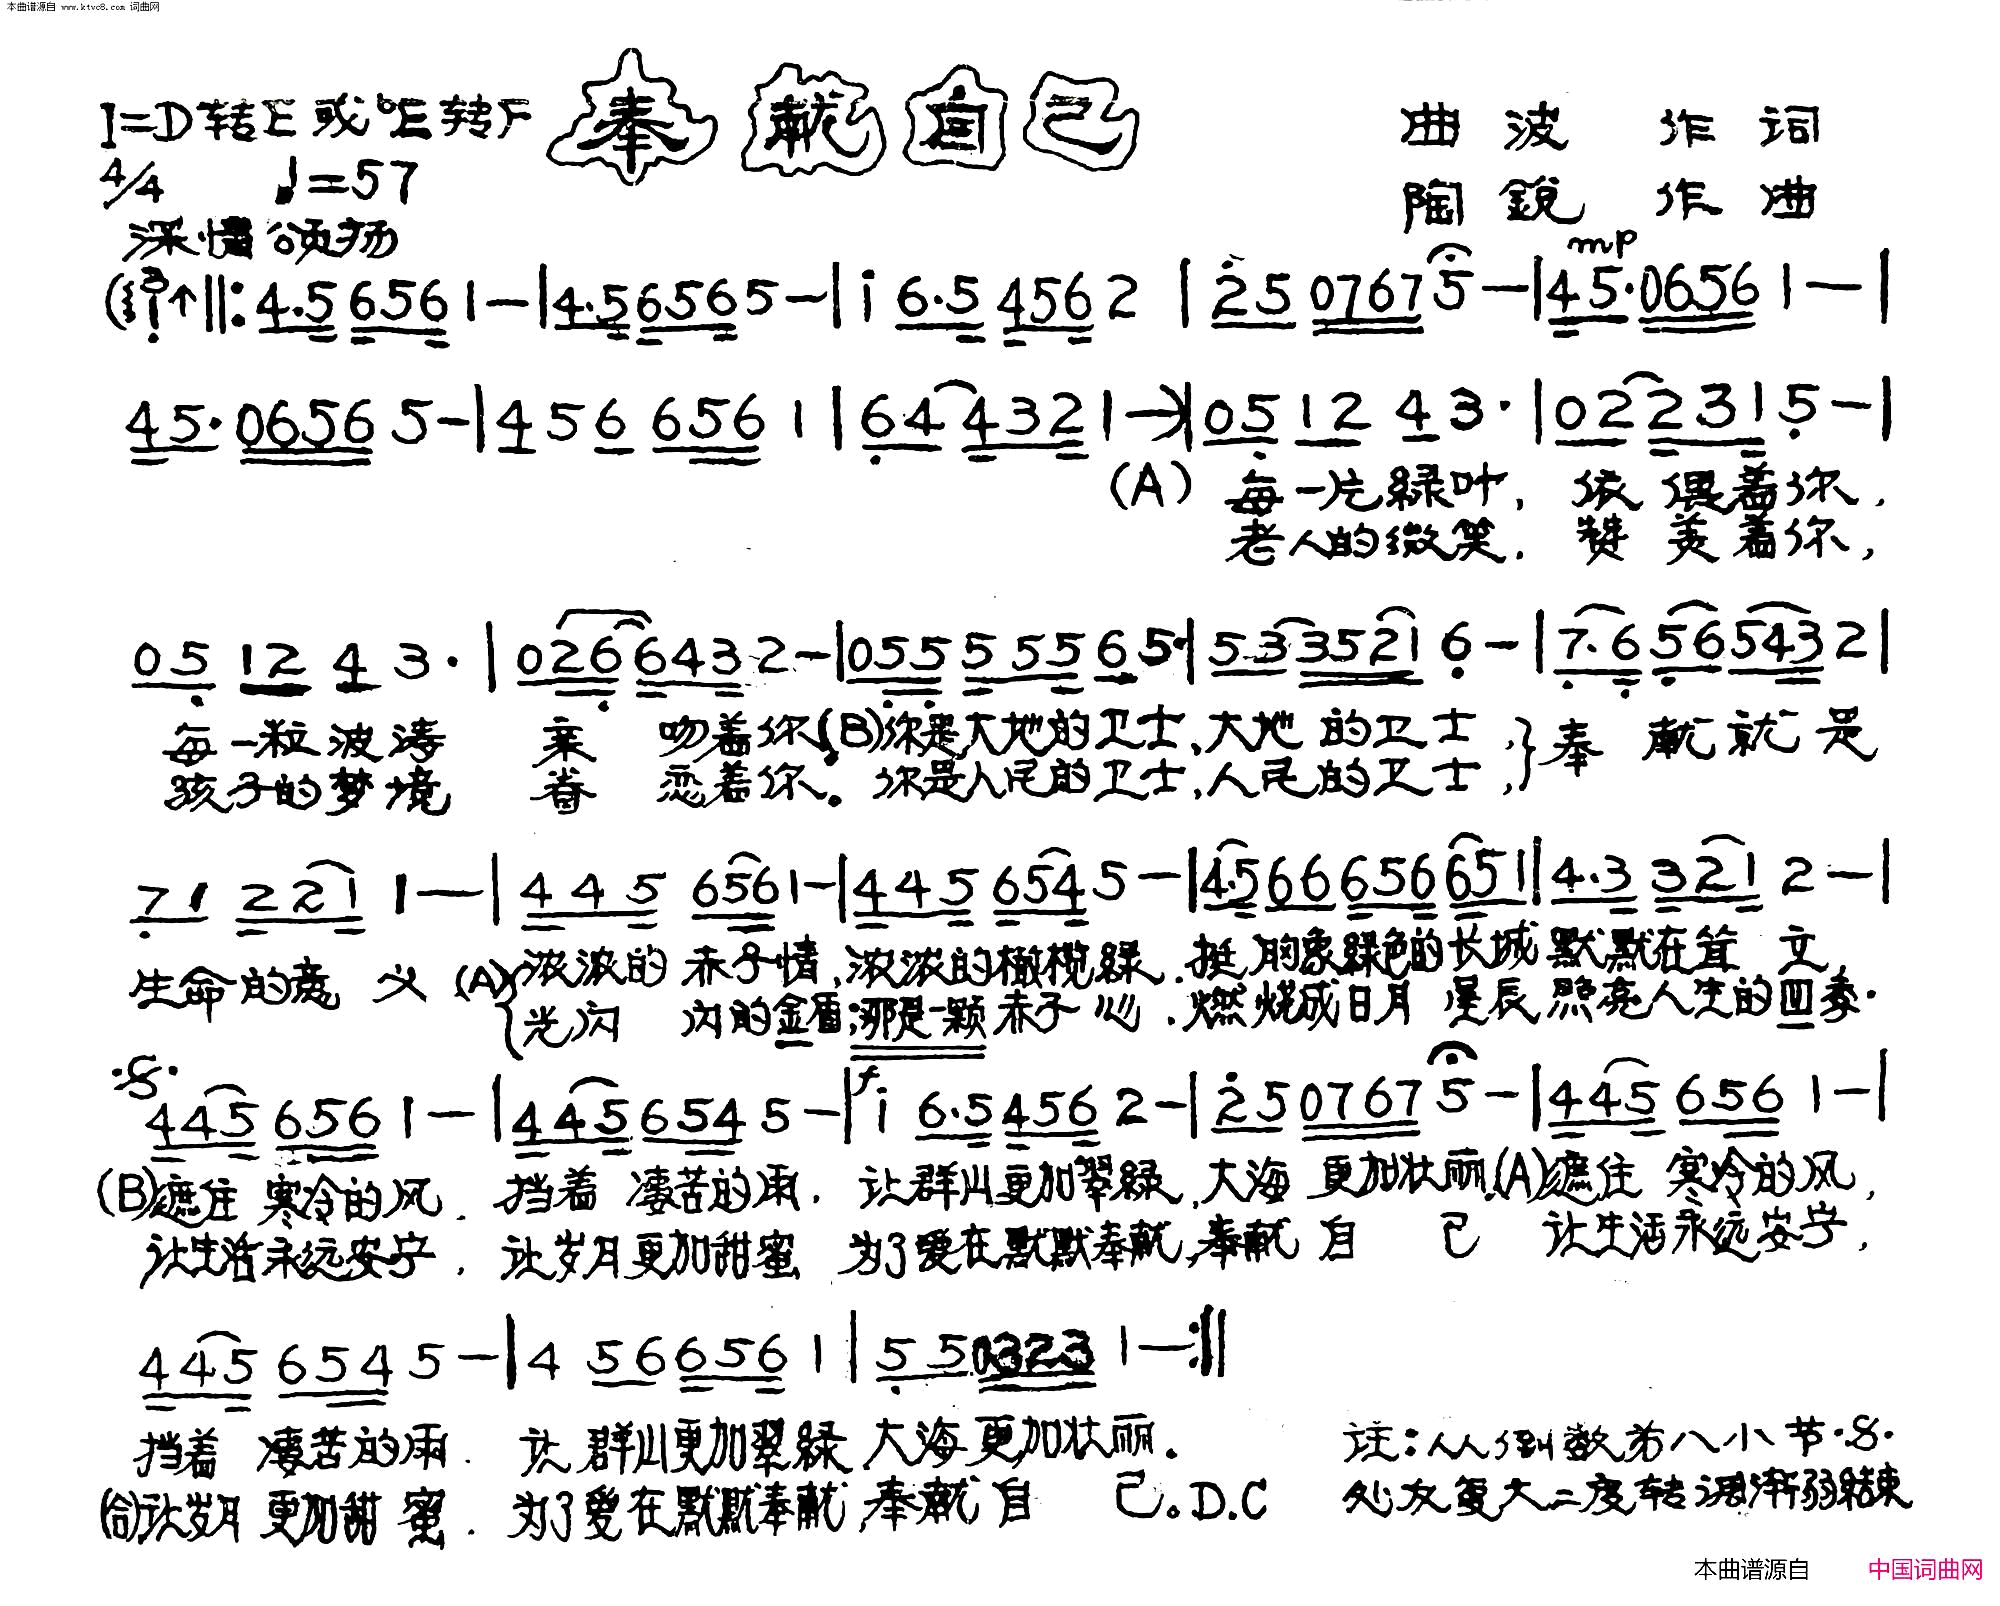 本曲谱源自 www.ktvc8.com 词曲网
1=D转E或♭E转F 奉献自己 曲波 作词
4/4 ♩=57 陶鋭 作曲
深情 颂扬
mp
4·5 656 1 — | 4·5 656 5 — | i 6·5 456 2 | 2 5 0767 5 — | 4 5· 0656 1 — |
4 5· 0656 5 — | 4 5 6 656 1 | 6 4 432 1 — ) | 0 5 12 4 3· | 0 2 231 5 — |
(A) 每一片緑叶, 依偎着你,
老人的微笑. 赞美着你,
0 5 12 4 3· | 026 643 2 — | 055 555 6 5· | 53 3521 6 — | 7·6 56 543 2 |
每一粒波涛 亲吻着你,(B)你是大地的卫士,大地的卫士,}奉献就是
孩子的梦境 眷恋着你。你是人民的卫士,人民的卫士,
7 1 2 21 1 — | 4 4 5 656 1 — | 4 4 5 654 5 — | 4·5 66 656 651 | 4·3 321 2 — |
生命的意义 (A){浓浓的赤子情,浓浓的橄榄緑.挺胸象緑色的长城默默在耸立,
光闪闪的金盾;那是一颗赤子心.燃烧成日月星辰照亮人生的四季.
445 656 1 — | 445 654 5 — | f i 6·5 456 2 — | 2 5 0767 5 — | 445 656 1 — |
(B)遮住寒冷的风.挡着凄苦的雨.让群山更加翠緑,大海更加壮丽.(A)遮住寒冷的风,
让生活永远安宁.让岁月更加甜蜜 为了爱在默默奉献,奉献自己 让生活永远安宁,
445 654 5 — | 4 56 656 1 | 5 5 0323 1 — :||
挡着凄苦的雨.让群山更加翠緑 大海更加壮丽. 注:从倒数第八小节·S·
(合)让岁月更加甜蜜.为了爱在默默奉献,奉献自己。D.C 处反复大二度转调渐弱结束
本曲谱源自 中国词曲网